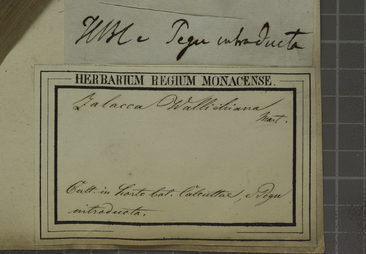 HBC e Pegu introducta
HERBARIUM REGIUM MONACENSE.
Zalacca Wallichiana
Mart.
Cult. in horto bot. Calcuttae, e Pegu
introducta.